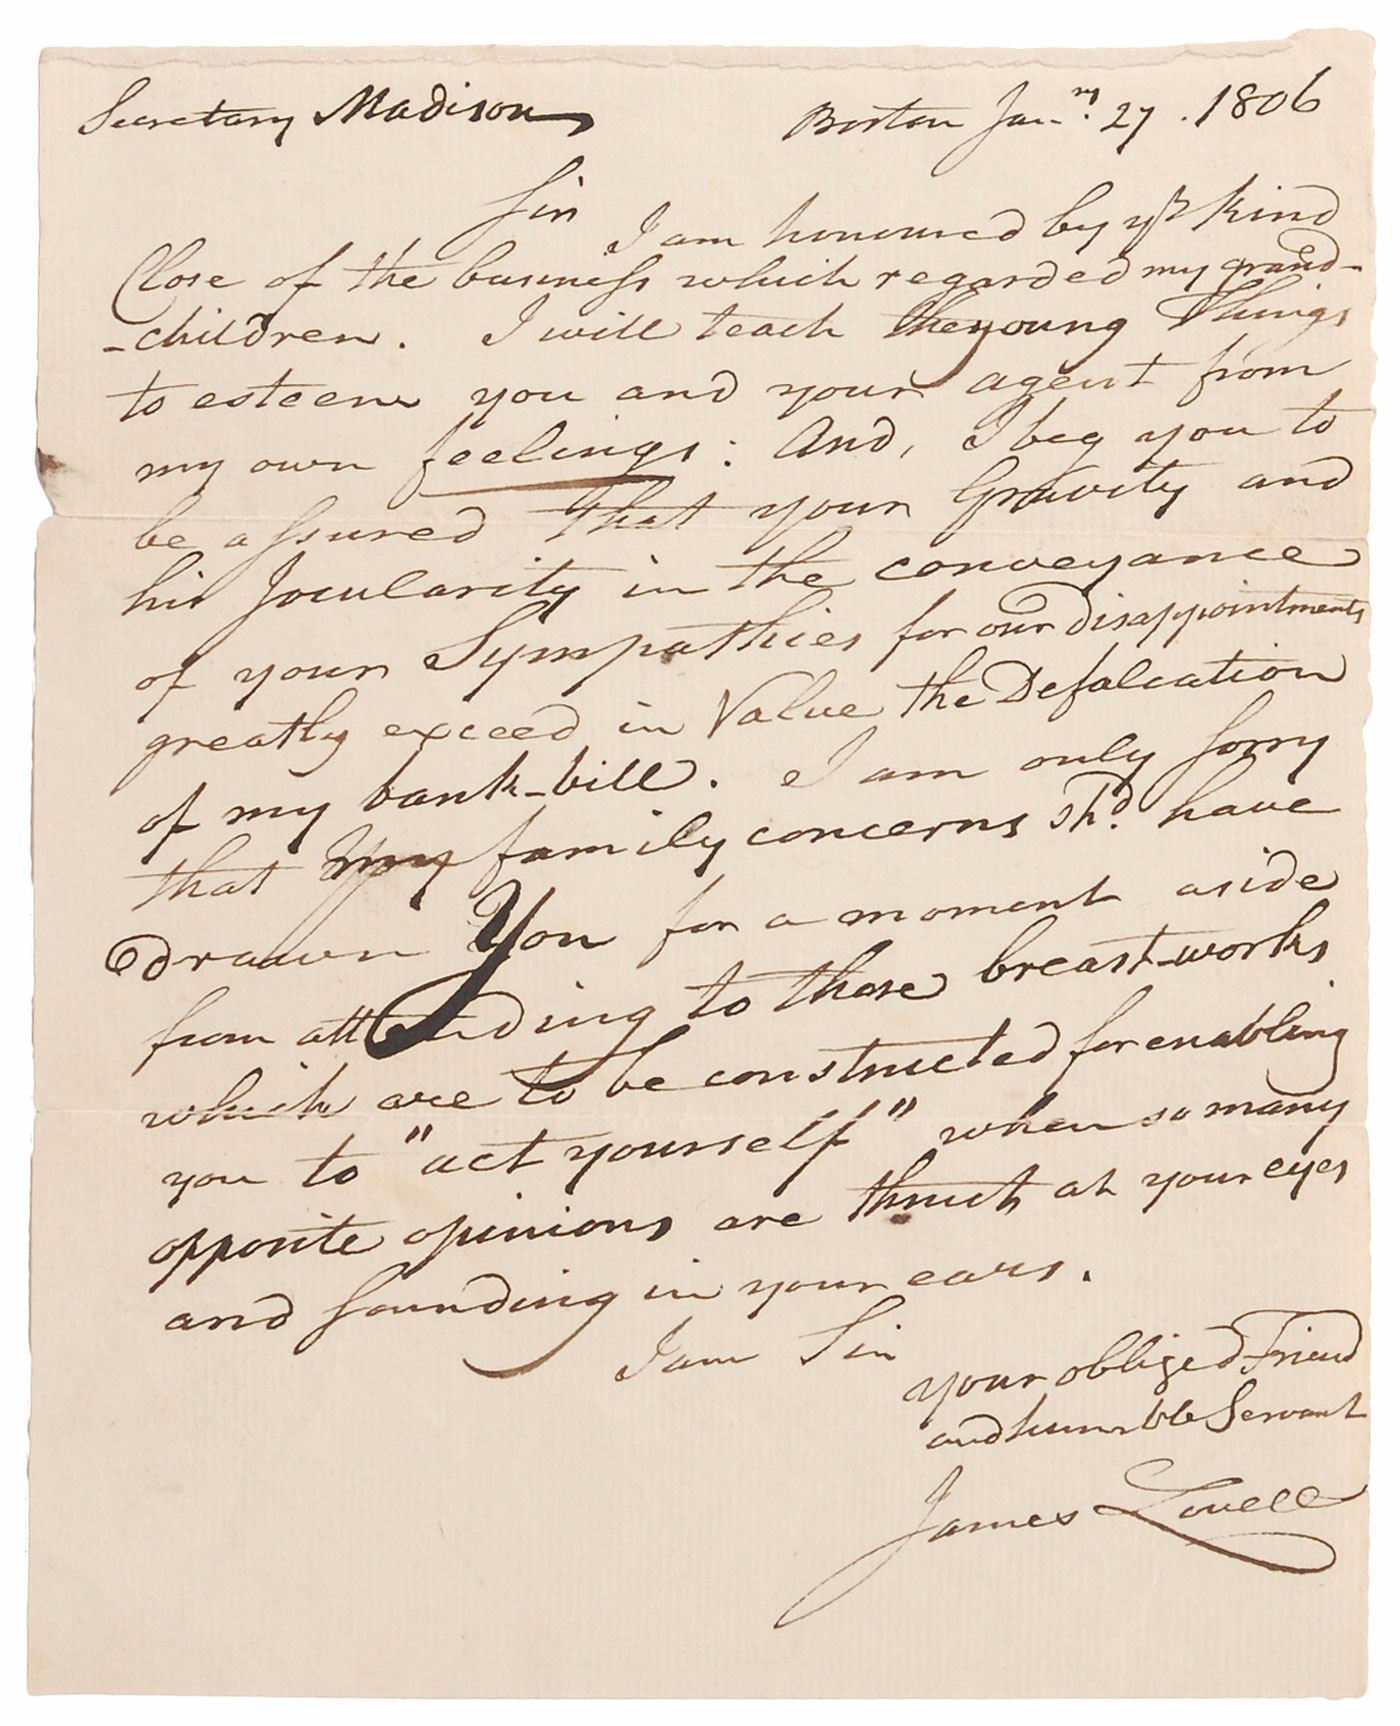 Secretary Madison Boston Jan.ry 27. 1806
Sir I am honoured by yr. kind
Close of the business which regarded my grand-
-children. I will teach the young Things
to esteem you and your agent from
my own feelings: And, I beg you to
be assured that your Gravity and
his Jocularity in the conveyance
of your Sympathies for our disappointments
greatly exceed in Value the Defalcation
of my bank-bill. I am only sorry
that my family concerns shd. have
drawn You for a moment aside
from attending to those breast-works
which are to be constructed for enabling
you to "act yourself" when so many
opposite opinions are thrust at your eyes
and sounding in your ears.
I am Sir
your obliged Friend
and humble Servant
James Lovell